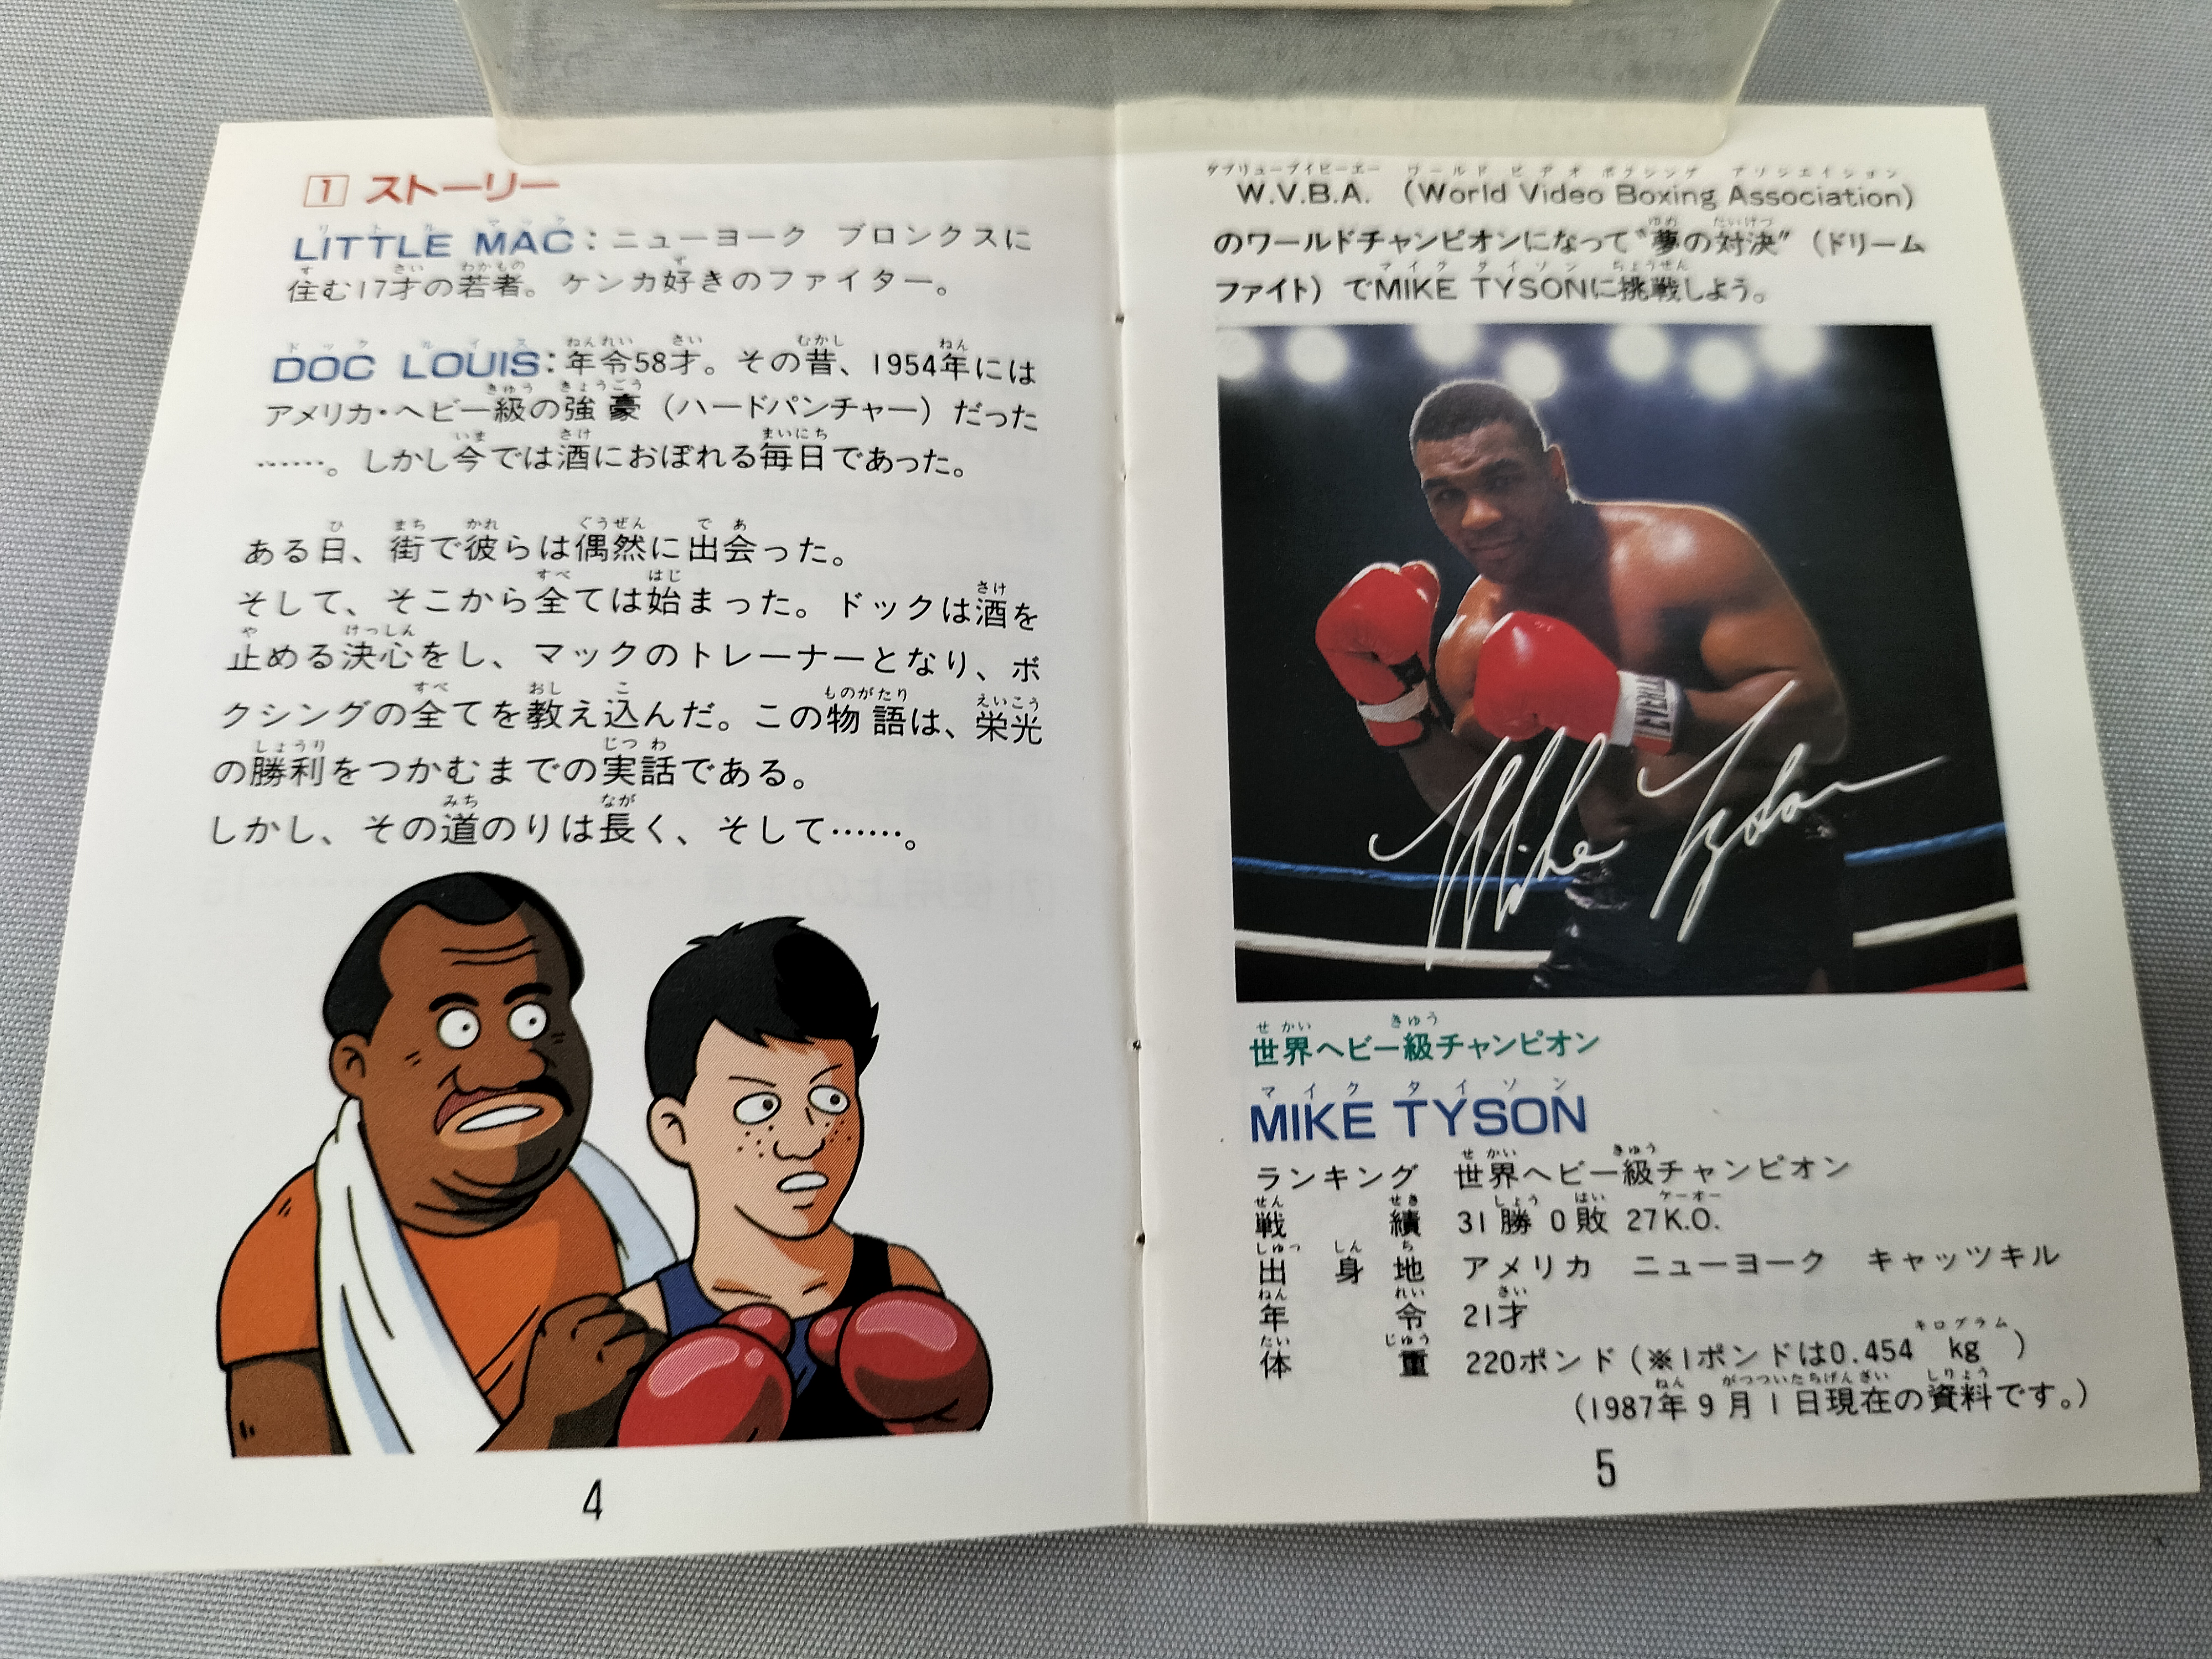 1 ストーリー
LITTLE MAC：ニューヨーク ブロンクスに
住む17才の若者。ケンカ好きのファイター。
DOC LOUIS：年令58才。その昔、1954年には
アメリカ・ヘビー級の強豪（ハードパンチャー）だった
……。しかし今では酒におぼれる毎日であった。
ある日、街で彼らは偶然に出会った。
そして、そこから全ては始まった。ドックは酒を
止める決心をし、マックのトレーナーとなり、ボ
クシングの全てを教え込んだ。この物語は、栄光
の勝利をつかむまでの実話である。
しかし、その道のりは長く、そして……。
4
W.V.B.A.（World Video Boxing Association）
のワールドチャンピオンになって“夢の対決”（ドリーム
ファイト）でMIKE TYSONに挑戦しよう。
EVERLAST
Mike Tyson
世界ヘビー級チャンピオン
MIKE TYSON
ランキング 世界ヘビー級チャンピオン
戦績 31勝 0敗 27K.O.
出身地 アメリカ ニューヨーク キャッツキル
年令 21才
体重 220ポンド（※1ポンドは0.454kg）
（1987年9月1日現在の資料です。）
5